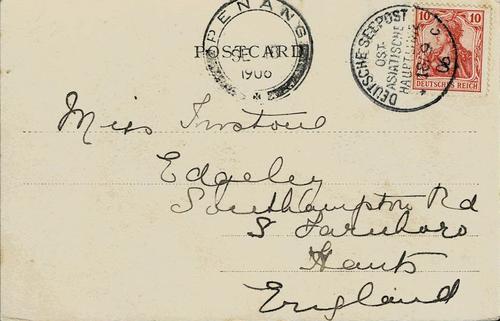 PENANG
POSTCARD
SE
1906
DEUTSCHE SEEPOST
OST-
ASIATISCHE
HAUPTLINIE
10 10
DEUTSCHES REICH
Miss Instone
Edgeley
Southampton Rd
S Farnboro
Hants
England